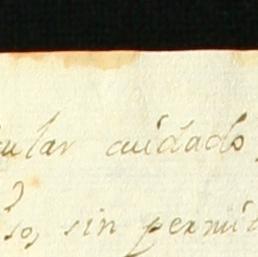 cular cuidado,
so, sin permit